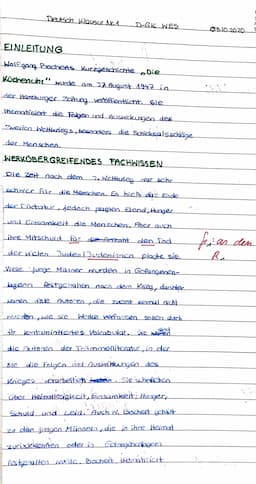 Deutsch Klausur Nr.1 D-GK WES 03.10.2020
EINLEITUNG
Wolfgang Borcherts Kurzgeschichte „Die
Küchenuhr" wurde am 27. August 1947 in
der Hamburger Zeitung veröffentlicht. Sie
thematisiert die Folgen und Auswirkungen des
Zweiten Weltkriegs, besonders die Schicksalsschläge
der Menschen.
WERKÜBERGREIFENDES FACHWISSEN
Die Zeit nach dem 2. Weltkrieg war sehr
schwer für die Menschen. Es hieß das Ende
der Diktatur, jedoch plagten Elend, Hunger
und Einsamkeit die Menschen. Aber auch
ihre Mitschuld für den Tod
der vielen Juden/Judeninnen plagte sie.
Viele junge Männer wurden in Gefangenen-
lagern festgehalten nach dem Krieg, darunter
waren viele Autoren, die zuerst einmal nicht
wussten, wie sie Werke verfassen sollen durch
ihr Vokabular. Sie
die Autoren der Trümmerliteratur, in der
sie die Folgen und Auswirkungen des
Krieges verarbeiten. Sie schreiben
über Heimatlosigkeit, Einsamkeit, Hunger,
Schuld und Leid. Auch W. Borchert gehört
zu den jungen Männern, die in ihre Heimat
zurückkehren oder in Gefangenenlagern
festgehalten wurde. Borchert
f; an den
R.